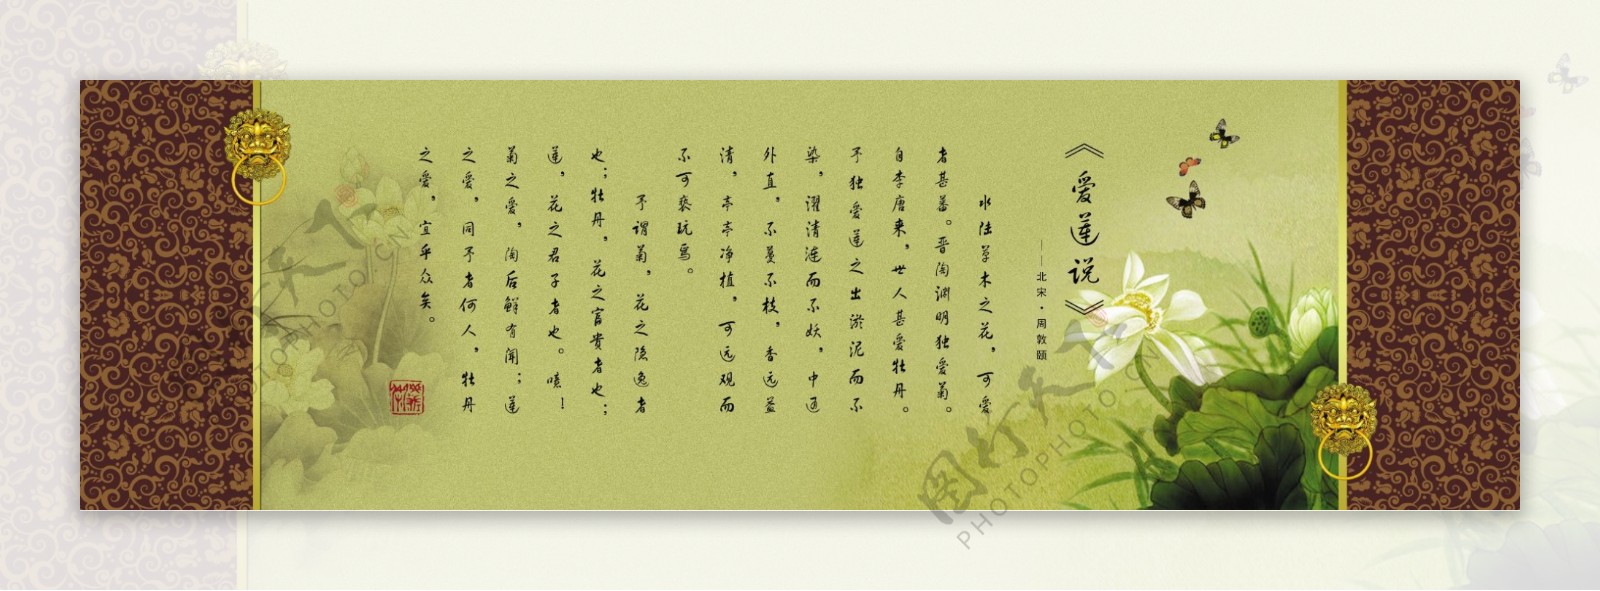 《爱莲说》
——北宋·周敦颐
水陆草木之花，可爱
者甚蕃。晋陶渊明独爱菊。
自李唐来，世人甚爱牡丹。
予独爱莲之出淤泥而不
染，濯清涟而不妖，中通
外直，不蔓不枝，香远益
清，亭亭净植，可远观而
不可亵玩焉。
予谓菊，花之隐逸者
也；牡丹，花之富贵者也；
莲，花之君子者也。噫！
菊之爱，陶后鲜有闻；莲
之爱，同予者何人，牡丹
之爱，宜乎众矣。
图行天下
PHOTOPHOTO.CN